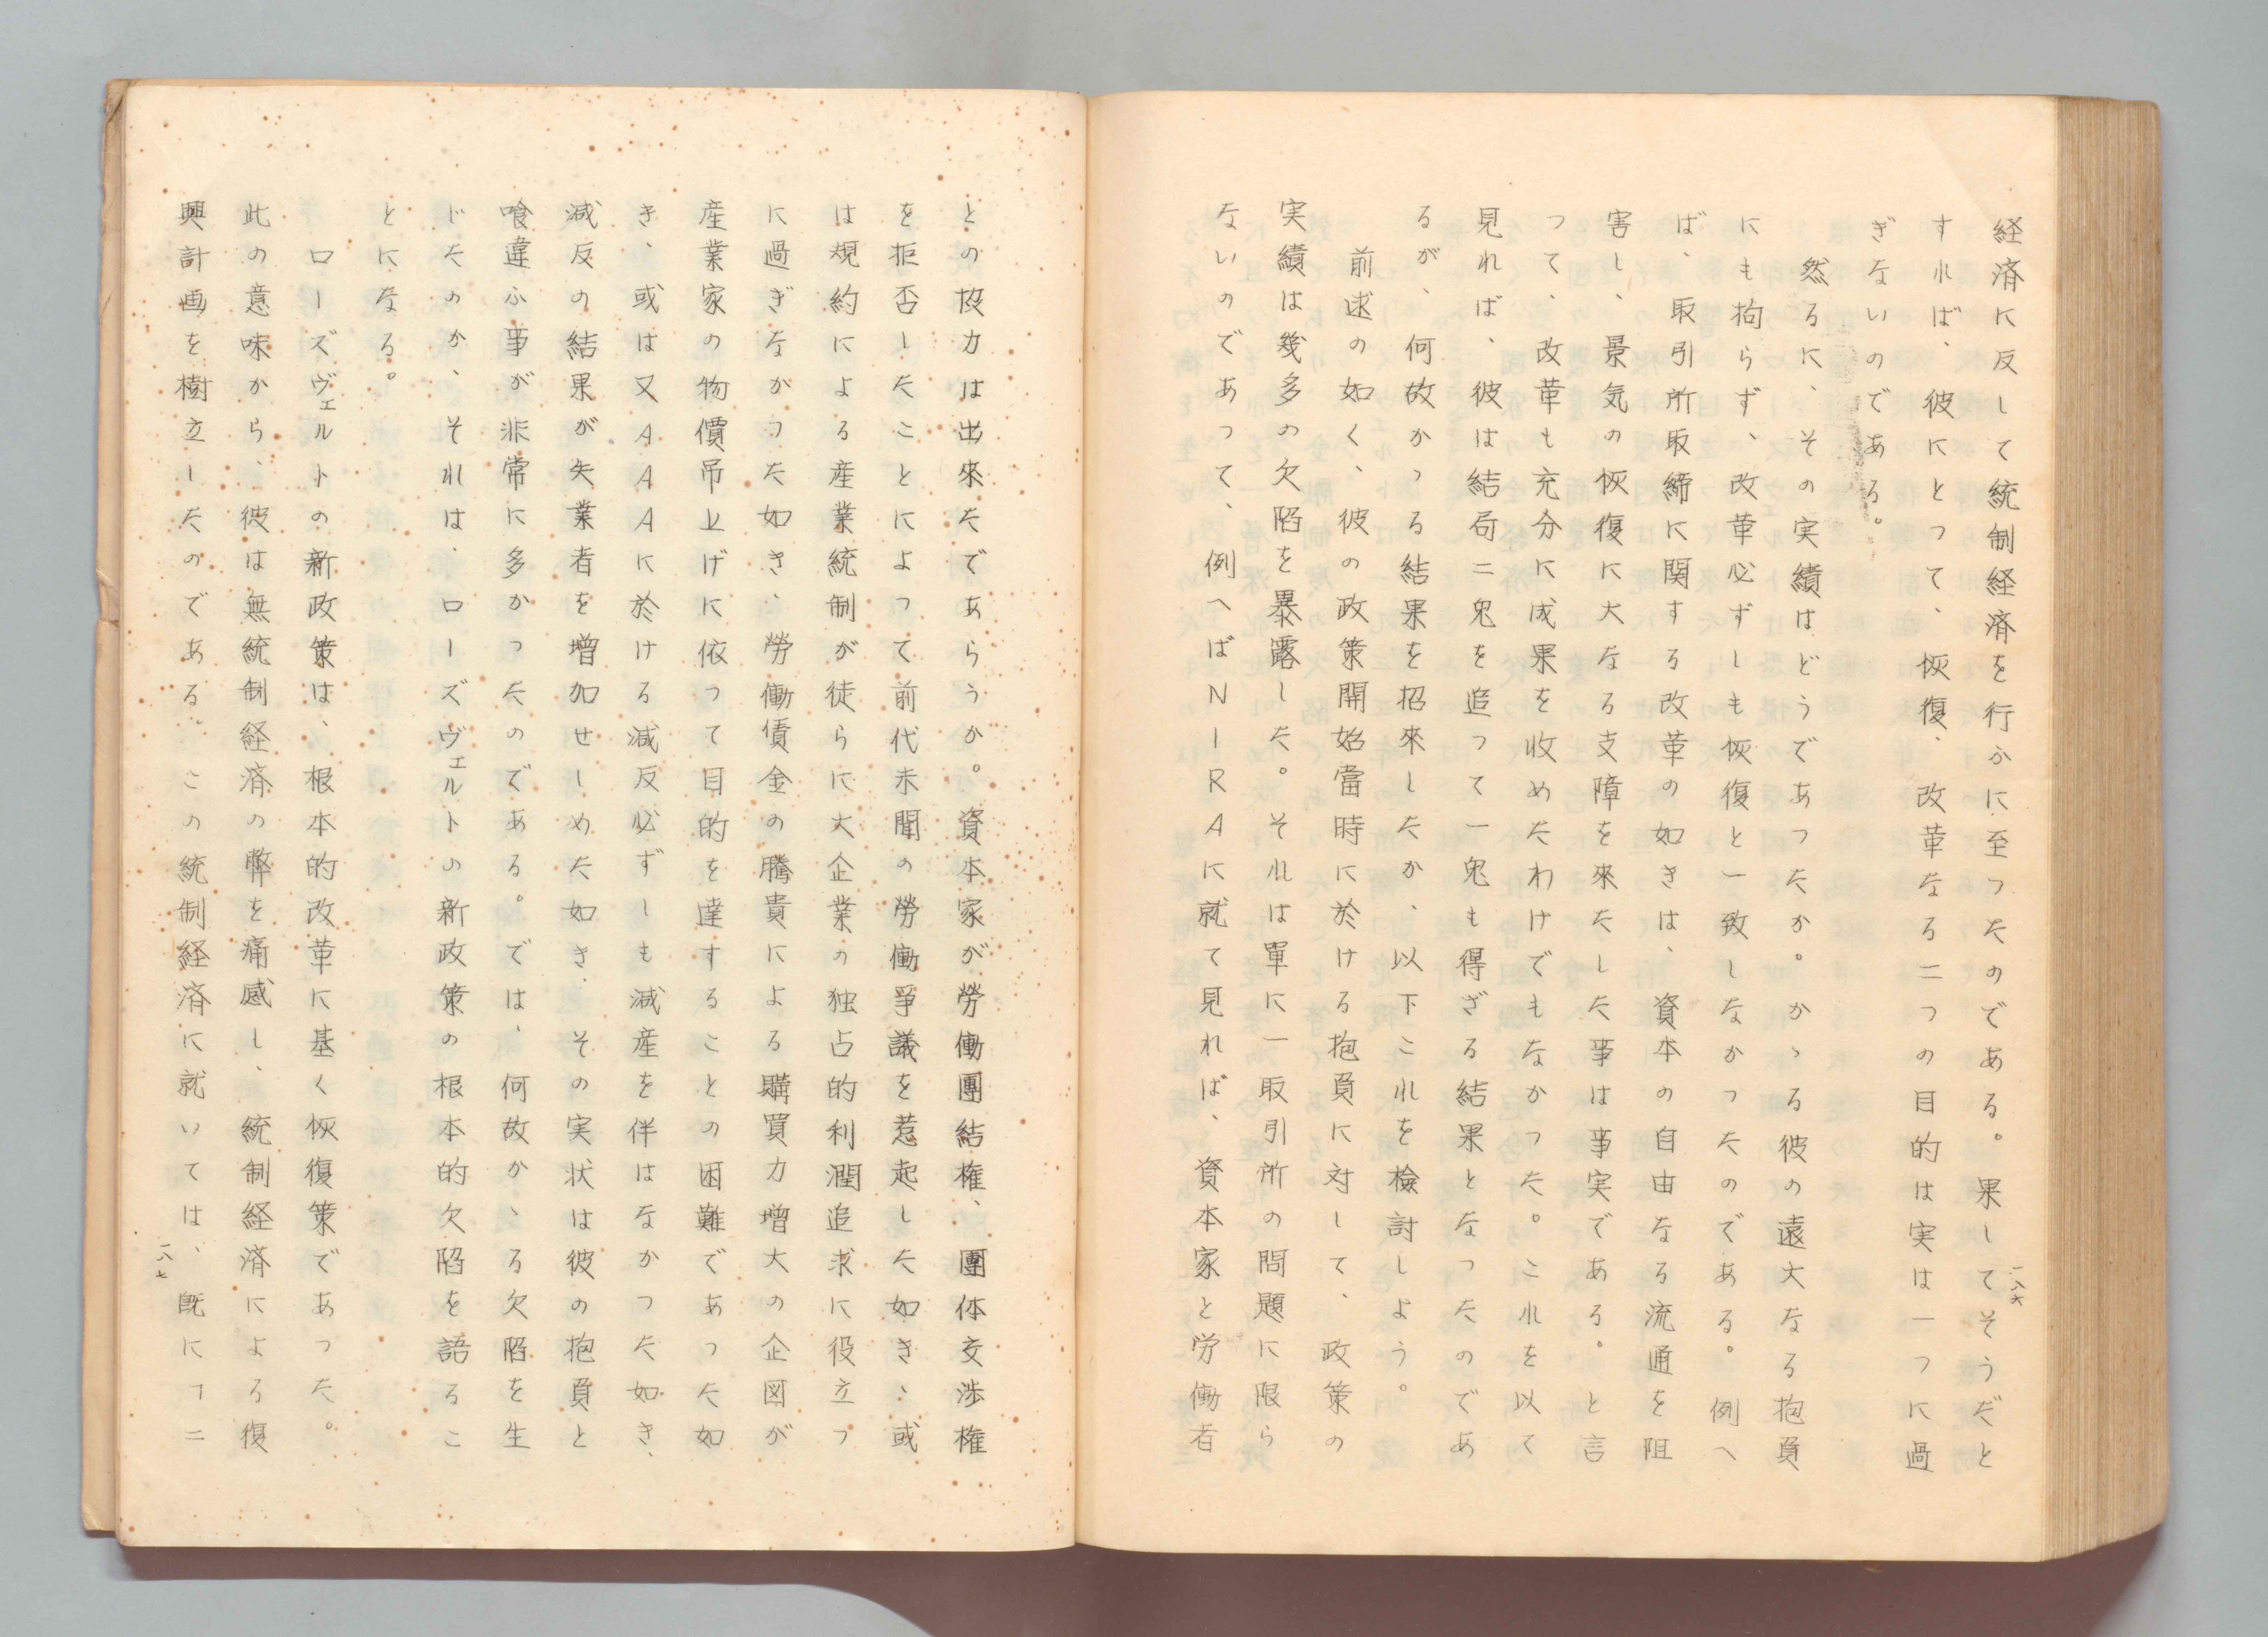 経済に反して統制経済を行かに至つたのである。果してそうだと
すれば、彼にとって、恢復、改革なる二つの目的は実は一つに過
ぎないのである。
然るに、その実績はどうであつたか。かゝる彼の遠大なる抱負
にも拘らず、改革必ずしも恢復と一致しなかつたのである。例へ
ば、取引所取締に関する改革の如きは、資本の自由なる流通を阻
害し、景気の恢復に大なる支障を來たした事は事実である。と言
って、改革も充分に成果を收めたわけでもなかつた。これを以て
見れば、彼は結局二兎を追って一兎も得ざる結果となつたのであ
るが、何故かゝる結果を招來したか、以下これを檢討しよう。
前述の如く、彼の政策開始當時に於ける抱負に対して、政策の
実績は幾多の欠陥を暴露した。それは單に一取引所の問題に限ら
ないのであって、例へばNIRAに就て見れば、資本家と労働者
一八六
との協力は出來たであらうか。資本家が勞働團結権、團体交渉権
を拒否したことによつて前代未聞の勞働爭議を惹起した如き、或
は規約による産業統制が徒らに大企業の独占的利潤追求に役立つ
に過ぎなかつた如き、勞働賃金の騰貴による購買力増大の企図が
産業家の物價吊上げに依つて目的を達することの困難であつた如
き、或は又AAAに於ける減反必ずしも減産を伴はなかつた如き、
減反の結果が失業者を増加せしめた如き、その実状は彼の抱負と
喰違ふ事が非常に多かつたのである。では、何故かゝる欠陥を生
じたのか、それは、ローズヴェルトの新政策の根本的欠陥を語るこ
とになる。
ローズヴェルトの新政策は、根本的改革に基く恢復策であつた。
此の意味から、彼は無統制経済の弊を痛感し、統制経済による復
興計画を樹立したのである。この統制経済に就いては、既に「ニ
一八七